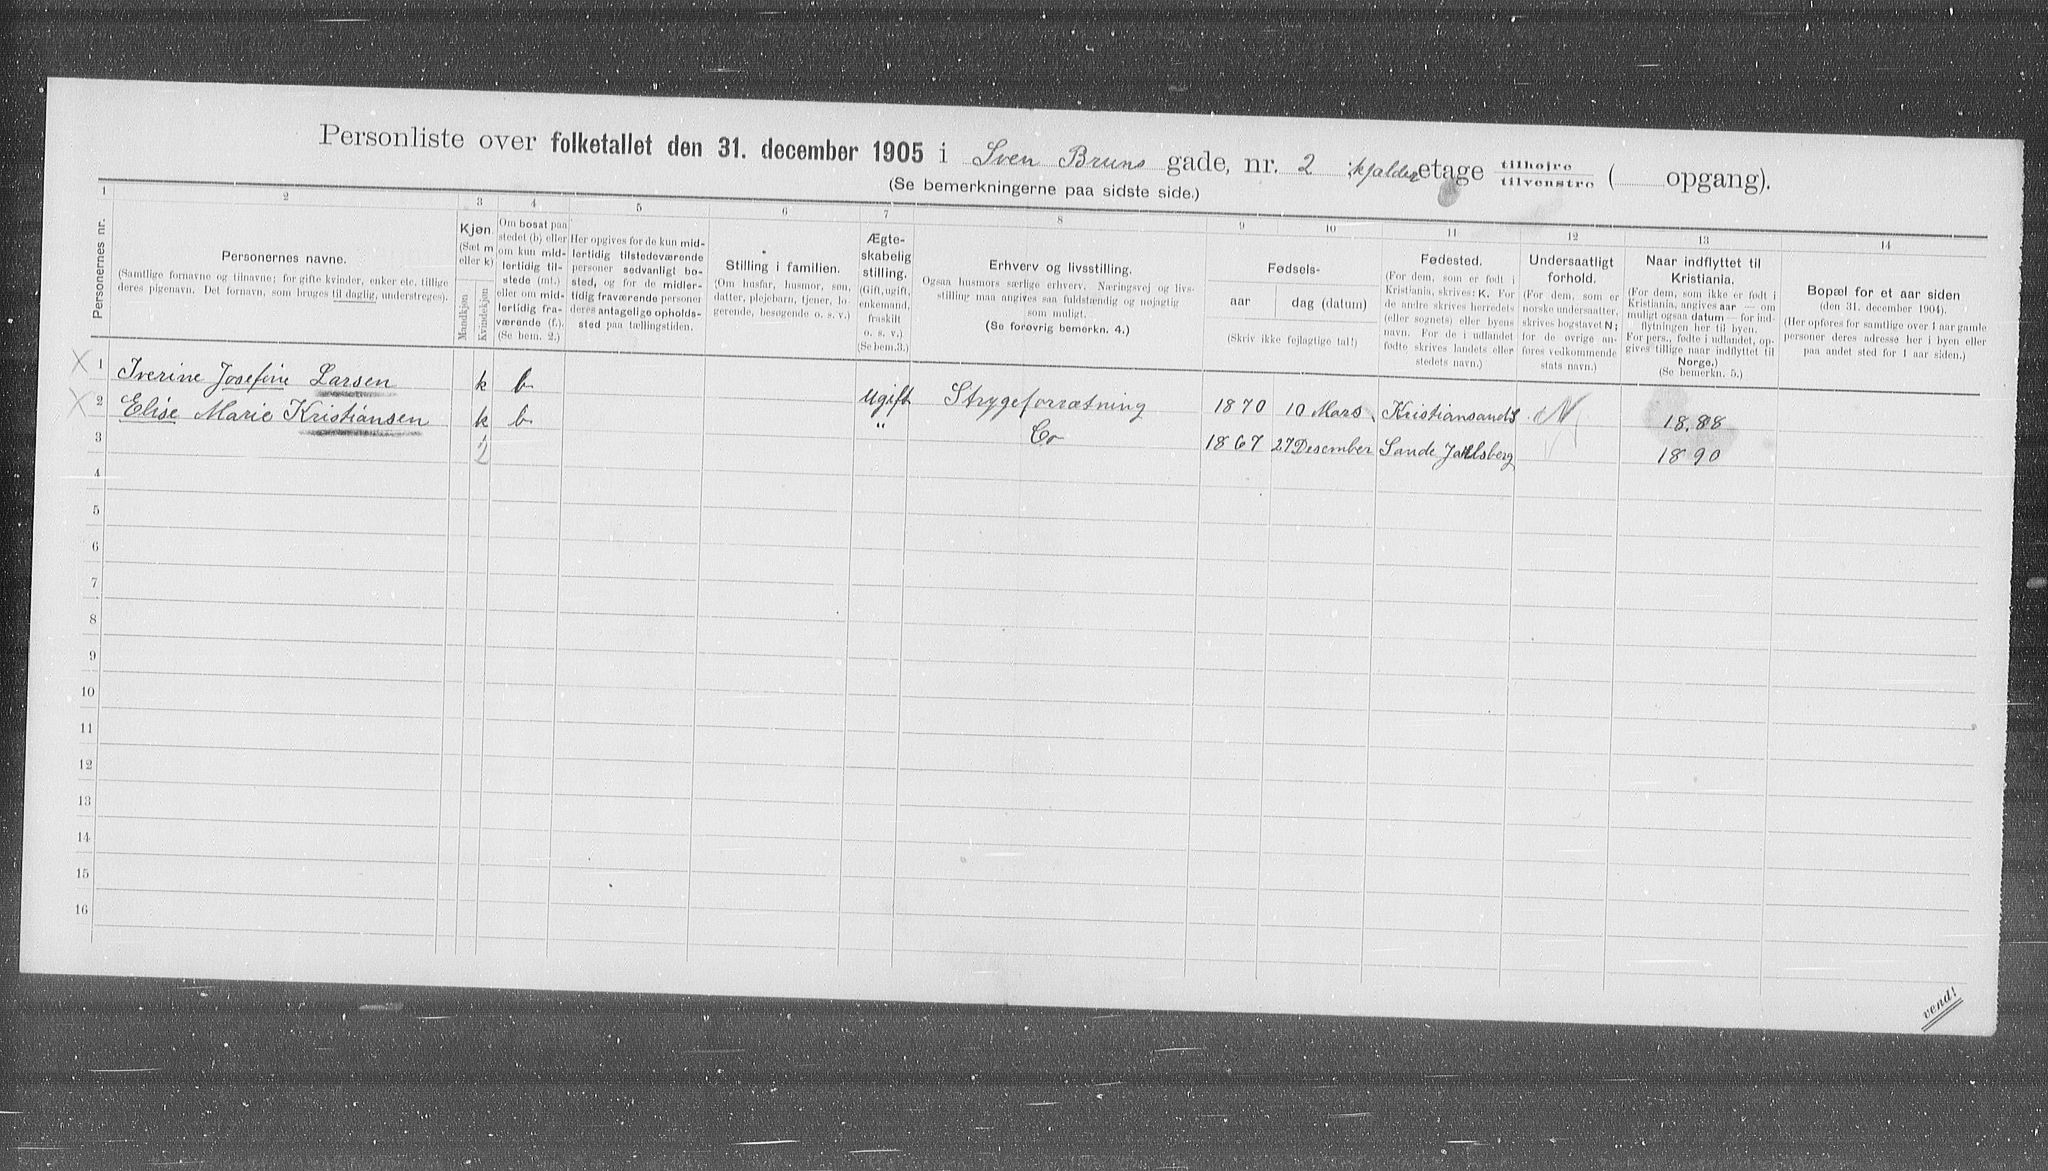 Personliste over folketallet den 31. december 1905 i Sven Bruns gade, nr. 2 kjelder etage tilhøire tilvenstre ( opgang).
(Se bemerkningerne paa sidste side.)
1 2 3 4 5 6 7 8 9 10 11 12 13 14
Personernes nr.
Personernes navne.
(Samtlige fornavne og tilnavne; for gifte kvinder, enker etc. tillige
deres pigenavn. Det fornavn, som bruges til daglig, understreges).
Kjøn.
(Sæt m
eller k)
Mandkjøn
Kvindekjøn
Om bosat paa
stedet (b) eller
om kun mid-
lertidig til-
stede (mt.)
eller om mid-
lertidig fra-
værende (f.).
(Se bem. 2.)
Her opgives for de kun mid-
lertidig tilstedeværende
personer sedvanligt bo-
sted, og for de midler-
tidig fraværende personer
deres antagelige opholds-
sted paa tællingstiden.
Stilling i familien.
(Om husfar, husmor, søn,
datter, plejebarn, tjener, lo-
gerende, besøgende o. s. v.)
Ægte-
skabelig
stilling.
(Gift, ugift,
enkemand,
fraskilt
o. s. v.)
(Se bem. 3.)
Erhverv og livsstilling.
Ogsaa husmors særlige erhverv. Næringsvej og livs-
stilling maa angives saa fuldstændig og nøjagtig
som muligt.
(Se forøvrig bemerkn. 4.)
Fødsels-
aar dag (datum)
(Skriv ikke fejlagtige tal!)
Fødested.
(For dem, som er født i
Kristiania, skrives: K. For
de andre skrives herredets
(eller sognets) eller byens
navn. For de i udlandet
fødte skrives landets eller
stedets navn.)
Undersaatligt
forhold.
(For dem, som er
norske undersaatter,
skrives bogstavet N;
for de øvrige an-
føres vedkommende
stats navn.)
Naar indflyttet til
Kristiania.
(For dem, som ikke er født i
Kristiania, angives aar — om
muligt ogsaa datum — for ind-
flytningen her til byen.
For pers., fødte i udlandet, op-
gives tillige naar indflyttet til
Norge.)
(Se bemerkn. 5.)
Bopæl for et aar siden
(den 31. december 1904).
(Her opføres for samtlige over 1 aar gamle
personer deres adresse her i byen eller
paa andet sted for 1 aar siden.)
1 Iverine Josefine Larsen k b Ugift Strygeforrætning 1870 10 Mars Kristiansands N 1888
2 Elise Marie Kristiansen k b " Co 1867 27 Desember Sande Jarlsberg 1890
3 2
4
5
6
7
8
9
10
11
12
13
14
15
16
vend!